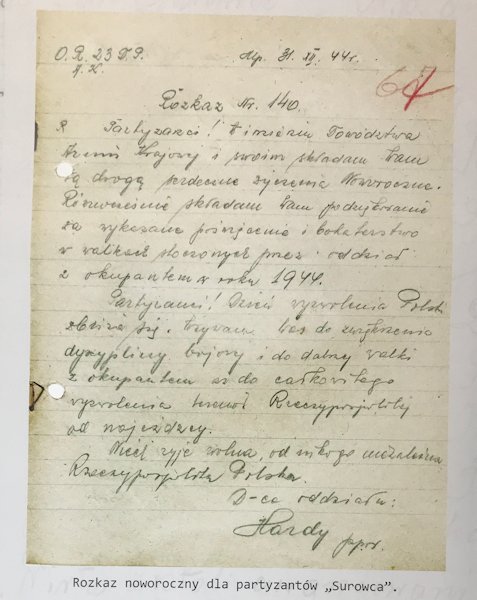 O.R. 23 D.P. Mp. 31 XII. 44 r.
A.K.
67
Rozkaz Nr. 140.
Partyzanci! W imieniu Dowództwa
Armii Krajowej i swoim składam Wam
tą drogą serdeczne życzenia Noworoczne.
Równocześnie składam Wam podziękowanie
za wykazane poświęcenie i bohaterstwo
w walkach stoczonych przez oddział
z okupantem w roku 1944.
Partyzanci! Dzień wyzwolenia Polski
zbliża się. Wzywam Was do zwiększenia
dyscypliny bojowej i do dalszej walki
z okupantem aż do całkowitego
wyzwolenia Rzeczypospolitej
od najeźdźcy.
Niech żyje wolna, od nikogo niezależna
Rzeczypospolita Polska.
D-ca oddziału:
Hardy ppor.
Rozkaz noworoczny dla partyzantów „Surowca”.